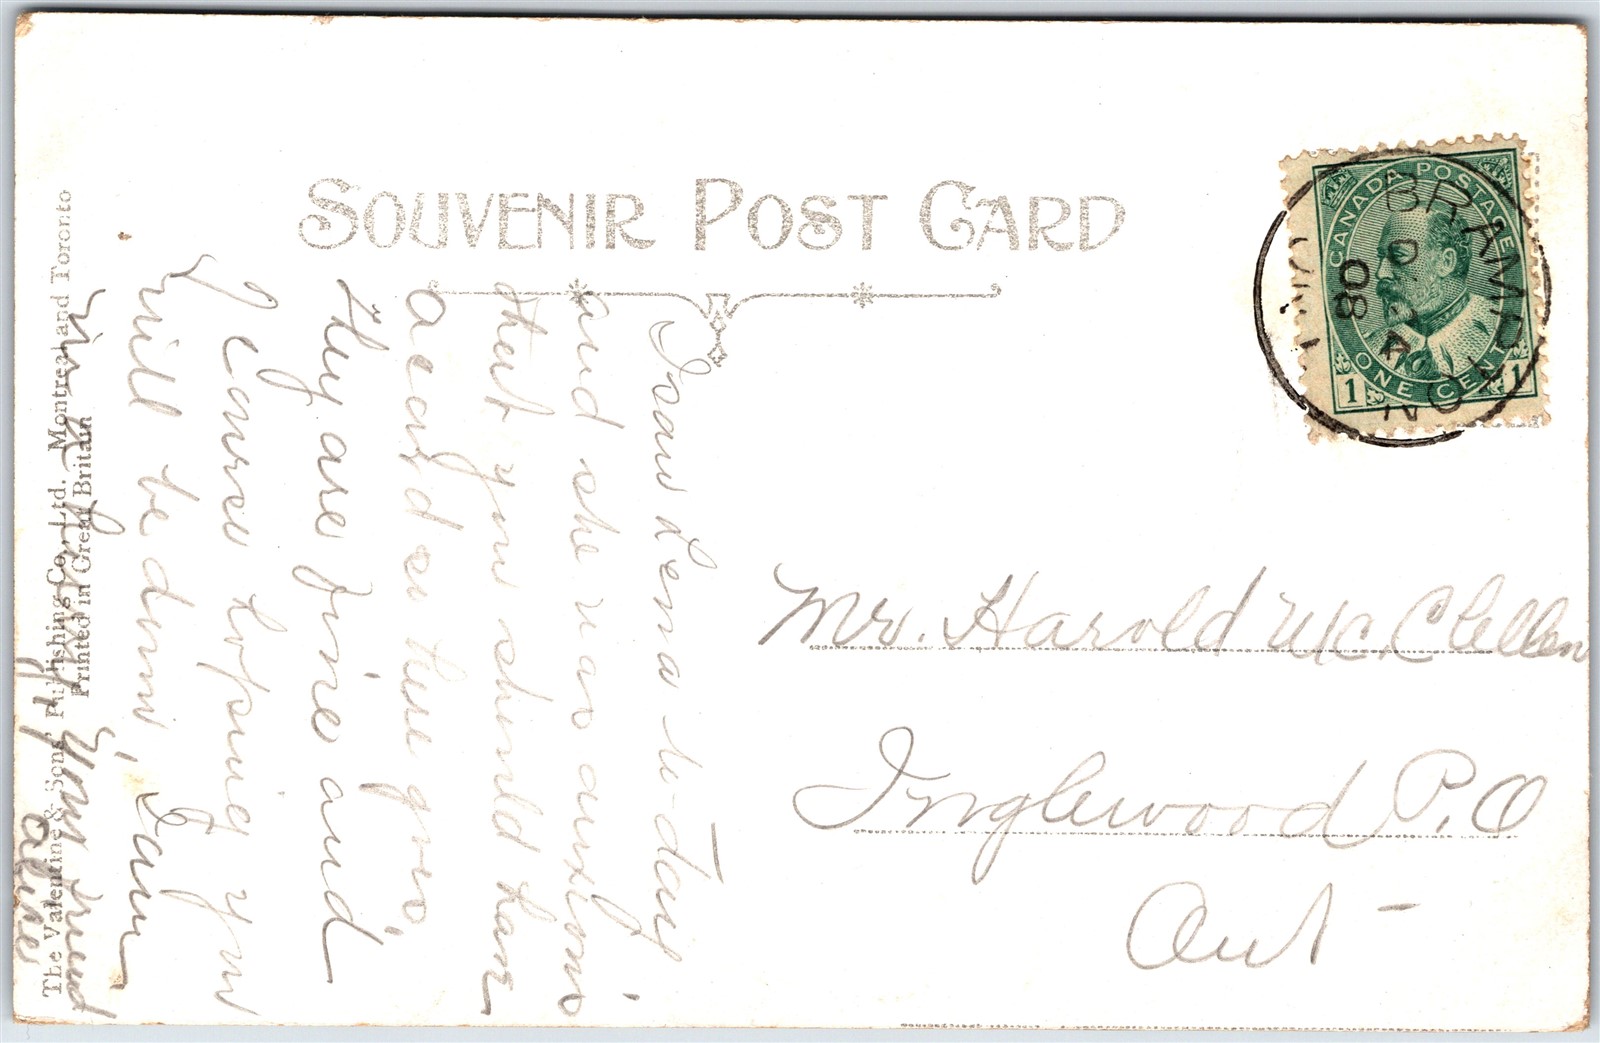 SOUVENIR POST CARD
CANADA POSTAGE
1 ONE CENT 1
BRAMPTON
08
Mr. Harold McClellan
Inglewood P.O
Ont -
I saw Lena to-day
and she was anxious
that you should have
a card so here goes
They are fine and
of course hoping you
will be down, I am
Your friend
The Valentine & Sons' Publishing Co. Ltd. Montreal and Toronto
Printed in Great Britain